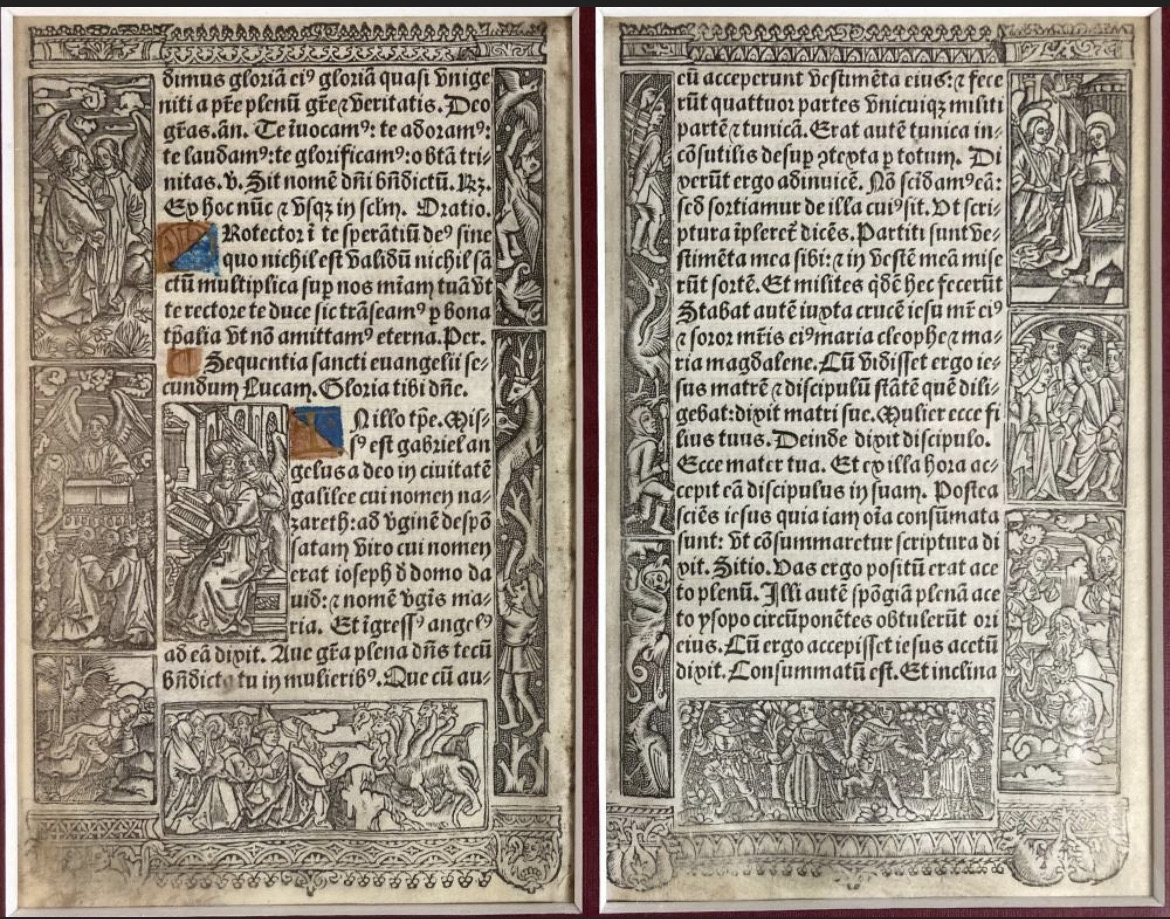 dimus gloriã ei⁹ gloriã quasi vnige
niti a pr̃e plenũ gr̃e ⁊ veritatis. Deo
gr̃as. añ. Te ĩuocam⁹: te adoram⁹:
te laudam⁹: te glorificam⁹: o btã tri-
nitas. v̄. Sit nomẽ dñi bñdictũ. Rꝫ.
Ex hoc nũc ⁊ vsqꝫ in sclm̃. Oratio.
Rotector ĩ te sperãtiũ de⁹ sine
quo nichil est validũ nichil sã
ctũ multiplica sup nos mĩam tuã vt
te rectore te duce sic trãseam⁹ ꝑ bona
tp̃alia vt nõ amittam⁹ eterna. Per.
Sequentia sancti euangelii se-
cundum Lucam. Gloria tibi dñe.
N illo tp̃e. Mis-
s⁹ est gabriel an
gelus a deo in ciuitatẽ
galilee cui nomen na-
zareth: ad v̄ginẽ despõ
satam viro cui nomen
erat ioseph d̃ domo da
uid: ⁊ nomẽ v̄gĩs ma-
ria. Et ĩgress⁹ angel⁹
ad eã dixit. Aue gr̃a plena dñs tecũ
bñdicta tu in mulierib⁹. Que cũ au-
cũ acceperunt vestimẽta eius: ⁊ fece
rũt quattuor partes vnicuiqꝫ militi
partẽ ⁊ tunicã. Erat autẽ tunica in-
cõsutilis desup ↄtexta ꝑ totum. Di
xerũt ergo adinuicẽ. Nõ scidam⁹ eã:
sed sortiamur de illa cui⁹ sit. Vt scri-
ptura ĩpleret̃ dicẽs. Partiti sunt ve-
stimẽta mea sibi: ⁊ in vestẽ meã mise
rũt sortẽ. Et milites q̃dẽ hec fecerũt
Stabat autẽ iuxta crucẽ iesu mr̃ ei⁹
⁊ soror mr̃is ei⁹ maria cleophe ⁊ ma-
ria magdalene. Cũ vidisset ergo ie-
sus matrẽ ⁊ discipulũ stãtẽ quẽ dili-
gebat: dixit matri sue. Mulier ecce fi
lius tuus. Deinde dixit discipulo.
Ecce mater tua. Et ex illa hora ac-
cepit eã discipulus in suam. Postea
sciẽs iesus quia iam oĩa consũmata
sunt: vt cõsummaretur scriptura di
xit. Sitio. Vas ergo positũ erat ace
to plenũ. Illi autẽ spõgiã plenã ace
to ysopo circũponẽtes obtulerũt ori
eius. Cũ ergo accepisset iesus acetũ
dixit. Consummatũ est. Et inclina